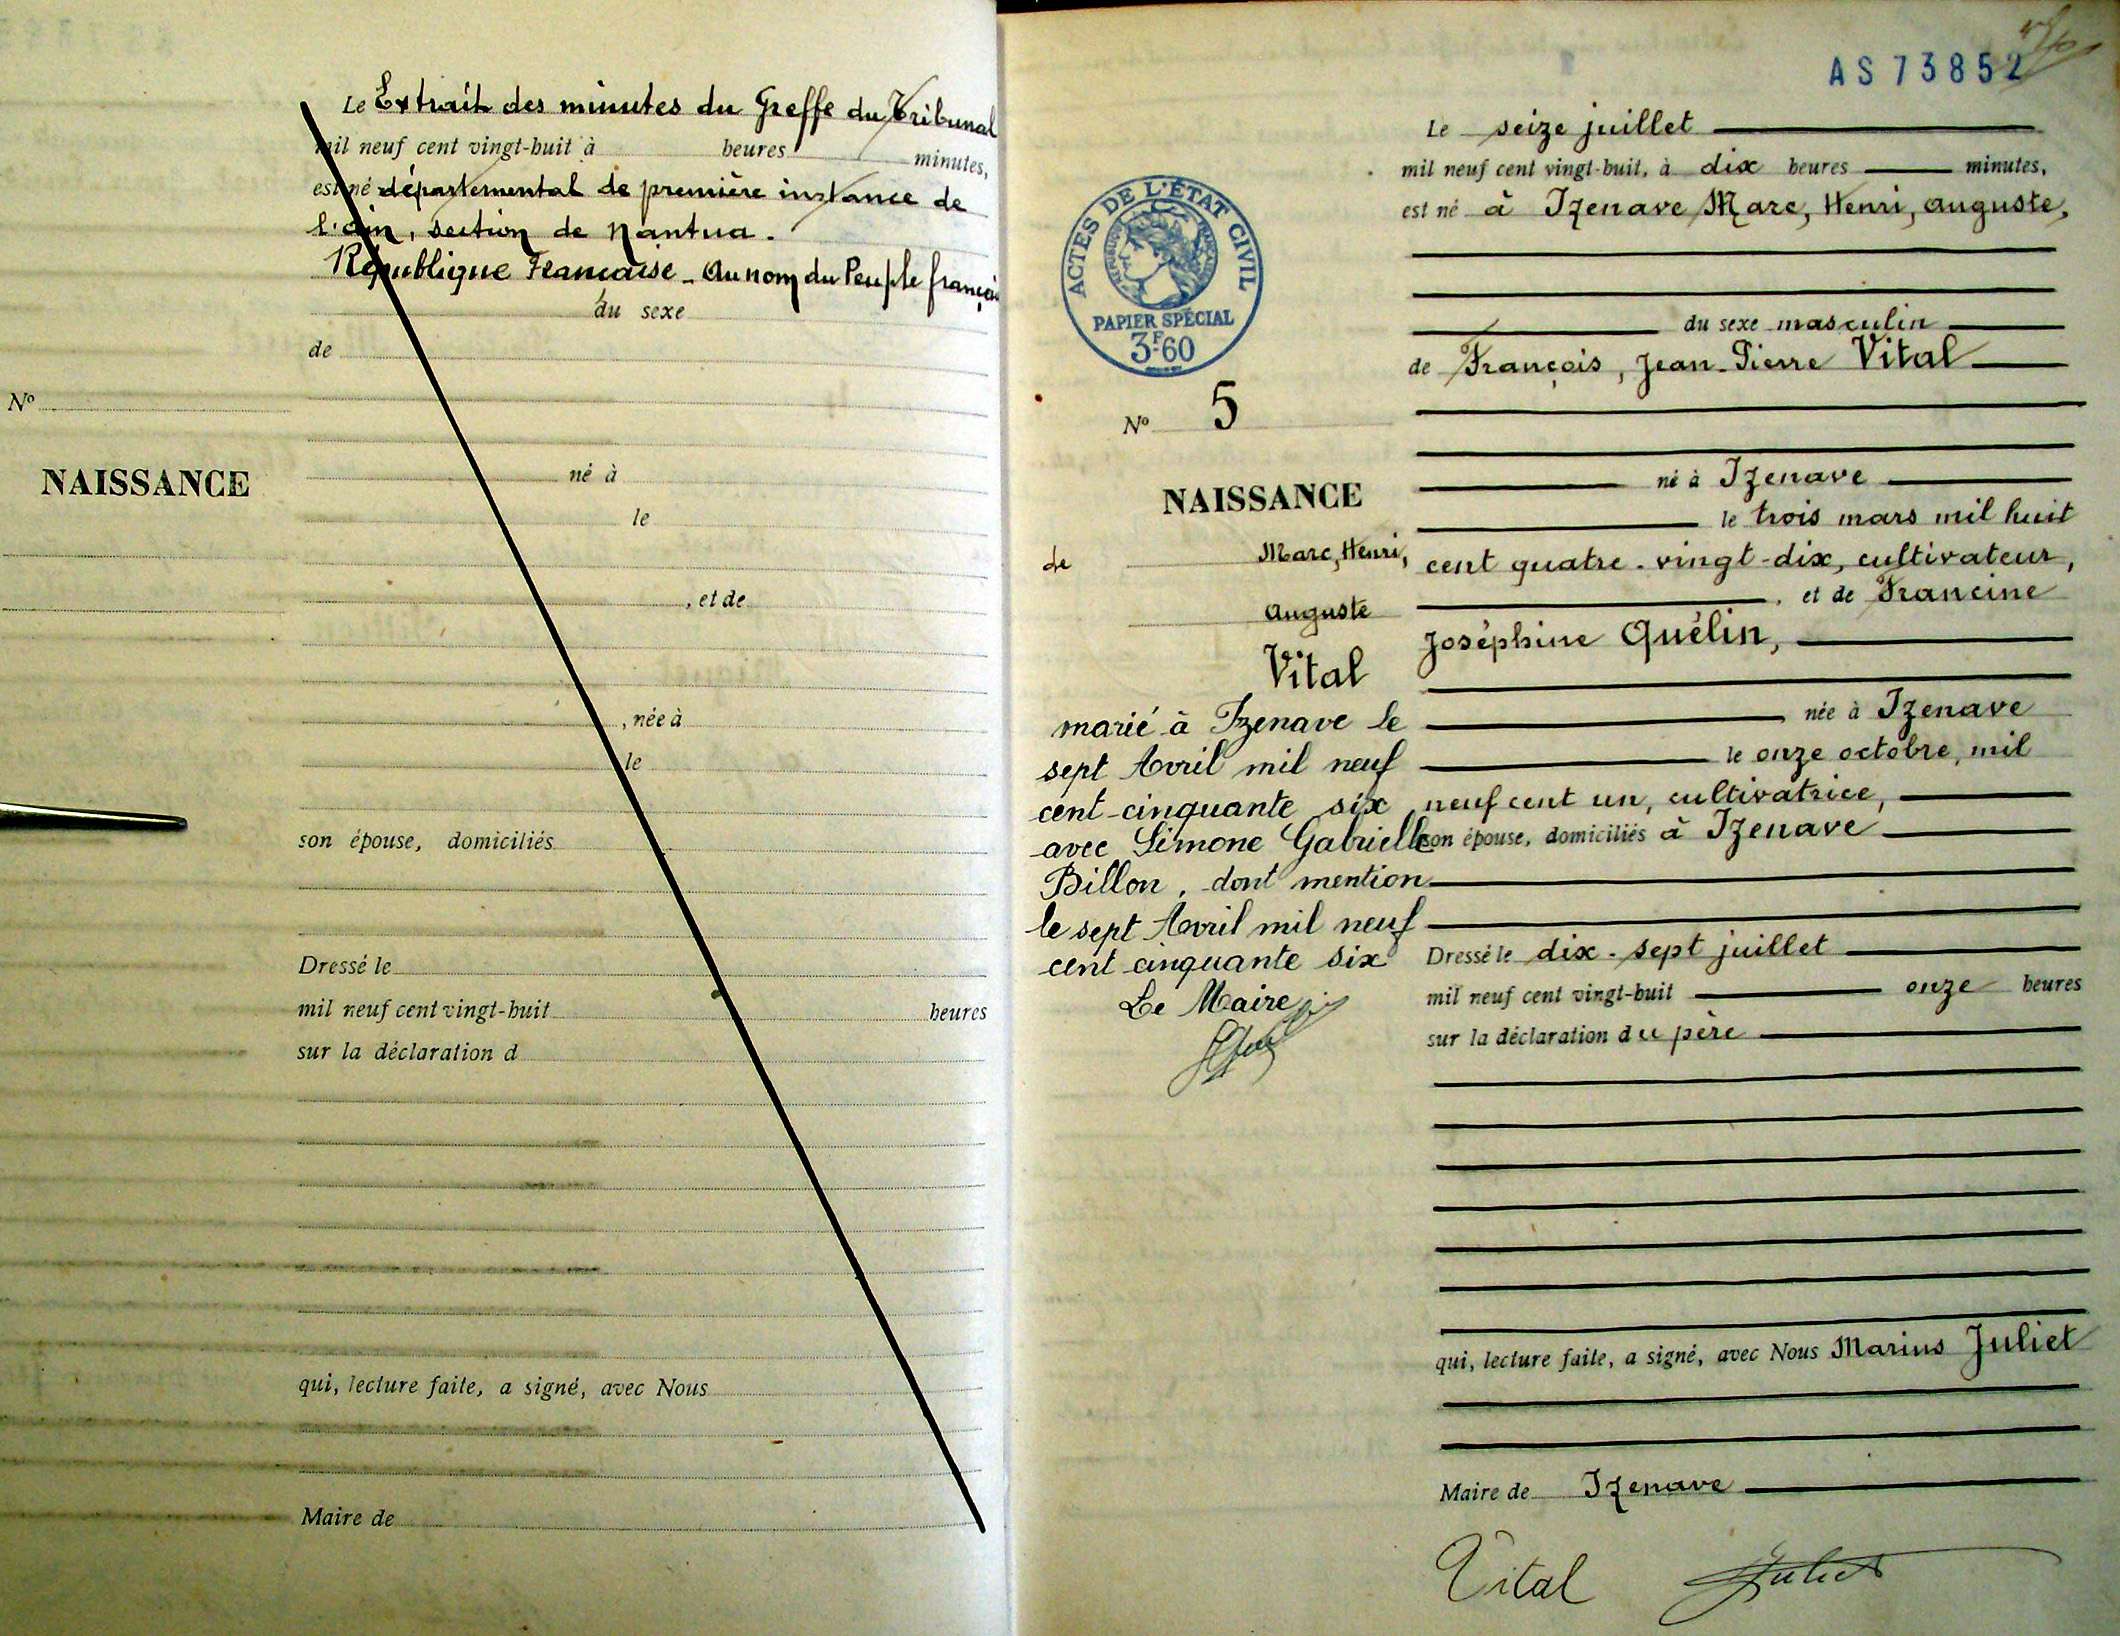 Le Extrait des minutes du Greffe du Tribunal
mil neuf cent vingt-huit à heures minutes,
est né départemental de première instance de
l'ain, section de Nantua.
République Française - Au nom du Peuple françai
du sexe
de
N°
NAISSANCE
né à
le
, et de
, née à
le
son épouse, domiciliés
Dressé le
mil neuf cent vingt-huit heures
sur la déclaration d
qui, lecture faite, a signé, avec Nous
Maire de
AS 73852
ACTES DE L'ÉTAT CIVIL
PAPIER SPÉCIAL
3F.60
N° 5
NAISSANCE
de Marc, Henri,
Auguste
Vital
marié à Izenave le
sept Avril mil neuf
cent-cinquante six
avec Simone Gabrielle
Billon, dont mention
le sept Avril mil neuf
cent cinquante six
Le Maire
Le seize juillet
mil neuf cent vingt-huit, à dix heures minutes,
est né à Izenave Marc, Henri, Auguste,
du sexe masculin
de François, Jean-Pierre Vital
né à Izenave
le trois mars mil huit
cent quatre-vingt-dix, cultivateur,
, et de Francine
Joséphine Quélin,
née à Izenave
le onze octobre, mil
neuf cent un, cultivatrice,
son épouse, domiciliés à Izenave
Dressé le dix-sept juillet
mil neuf cent vingt-huit onze heures
sur la déclaration du père
qui, lecture faite, a signé, avec Nous Marius Juliet
Maire de Izenave
Vital Juliet